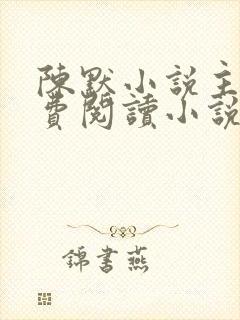 陳默小說主
費閱讀小說
錦書燕